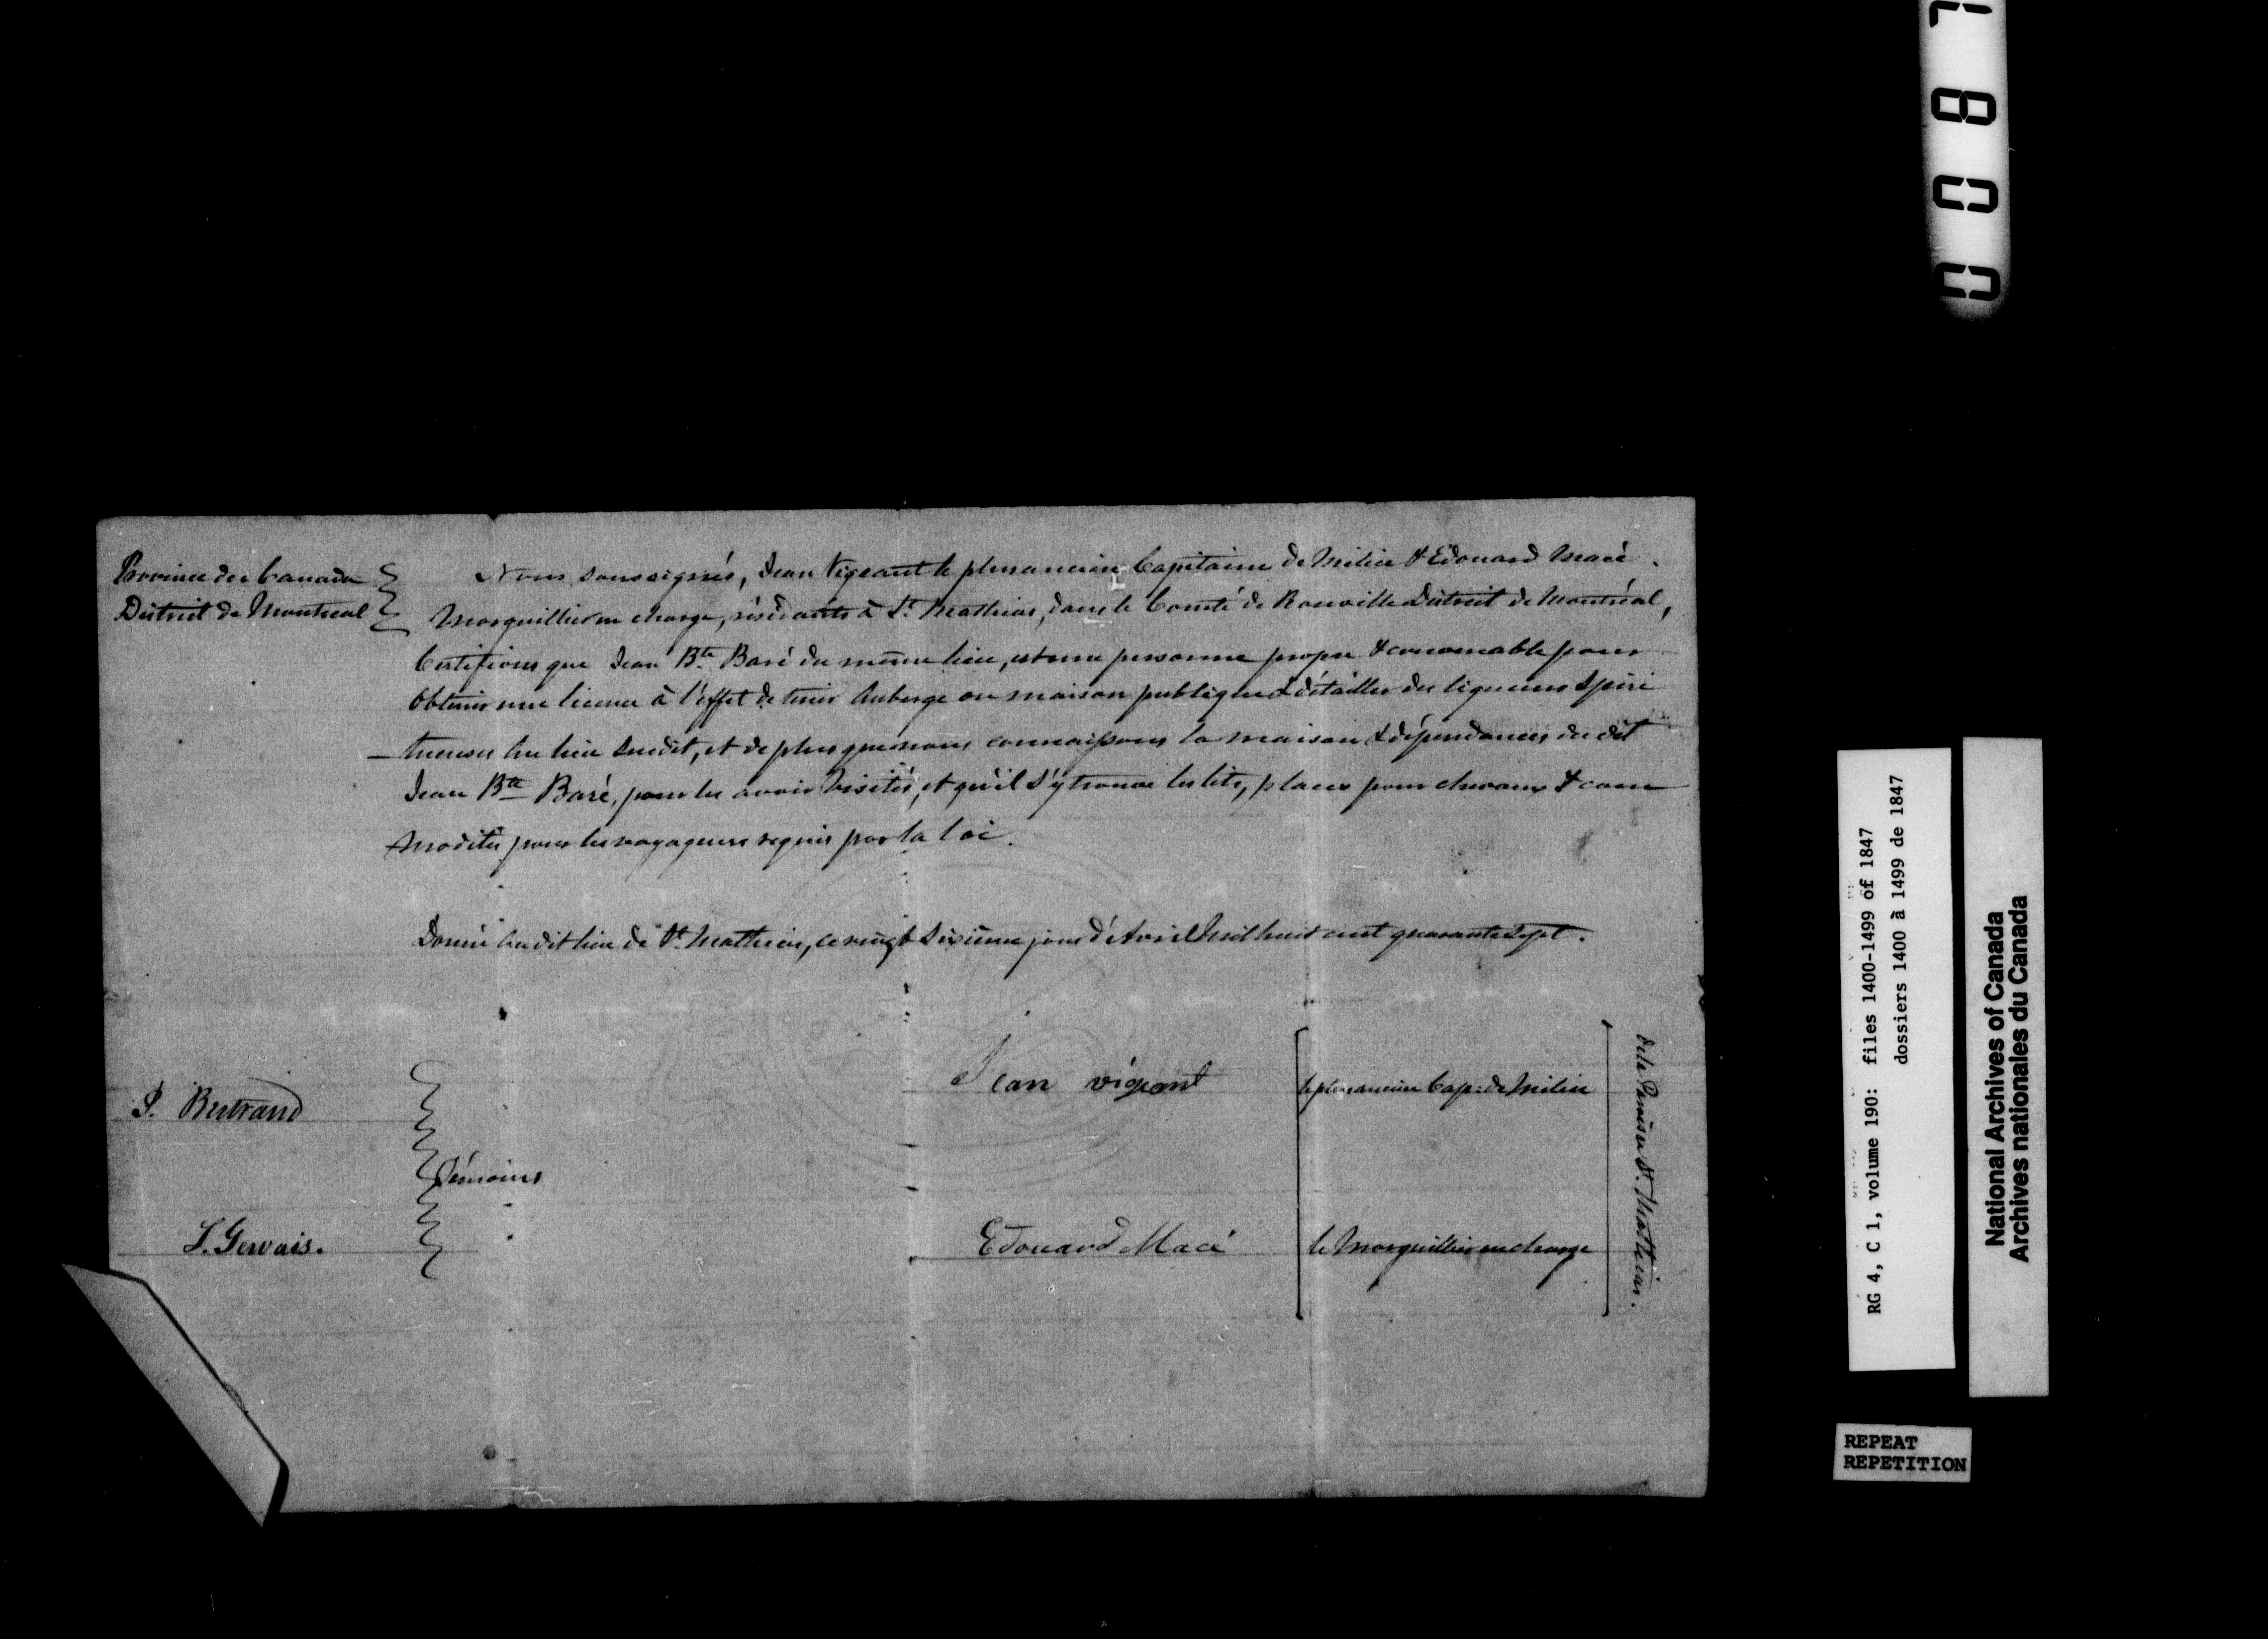 Province du Canada
District de Montreal
Nous soussignés, Jean Vigeant le plus ancien Capitaine de Milice & Edouard Macé
Marguillier en charge, résidants à St. Mathias, dans le Comté de Rouville District de Montréal,
Certifions que Jean Bte. Baré du même lieu, est une personne propre & convenable pour
obtenir une licence à l'effet de tenir Auberge ou maison publique & détailler des liqueurs Spiri
-tueuses au lieu susdit, et de plus que nous connaissons la maison & dépendances du dit
Jean Bte Baré, pour les avoir visités, et qu'il s'y trouve les lits, places pour chevaux & com
modités pour les voyageurs requis par la loi.
Donné au dit lieu de St. Mathias, ce vingt Sixième jour d'Avril Mil huit cent quarante Sept.
P. Bertrand
Témoins
S. Gervais.
Jean vigeant
le plus ancien Cap: de Milice
Edouard Macé
le Marguillier en charge
de la Paroisse St. Mathias.
0087
RG 4, C 1, volume 190: files 1400-1499 of 1847
dossiers 1400 à 1499 de 1847
National Archives of Canada
Archives nationales du Canada
REPEAT
REPETITION